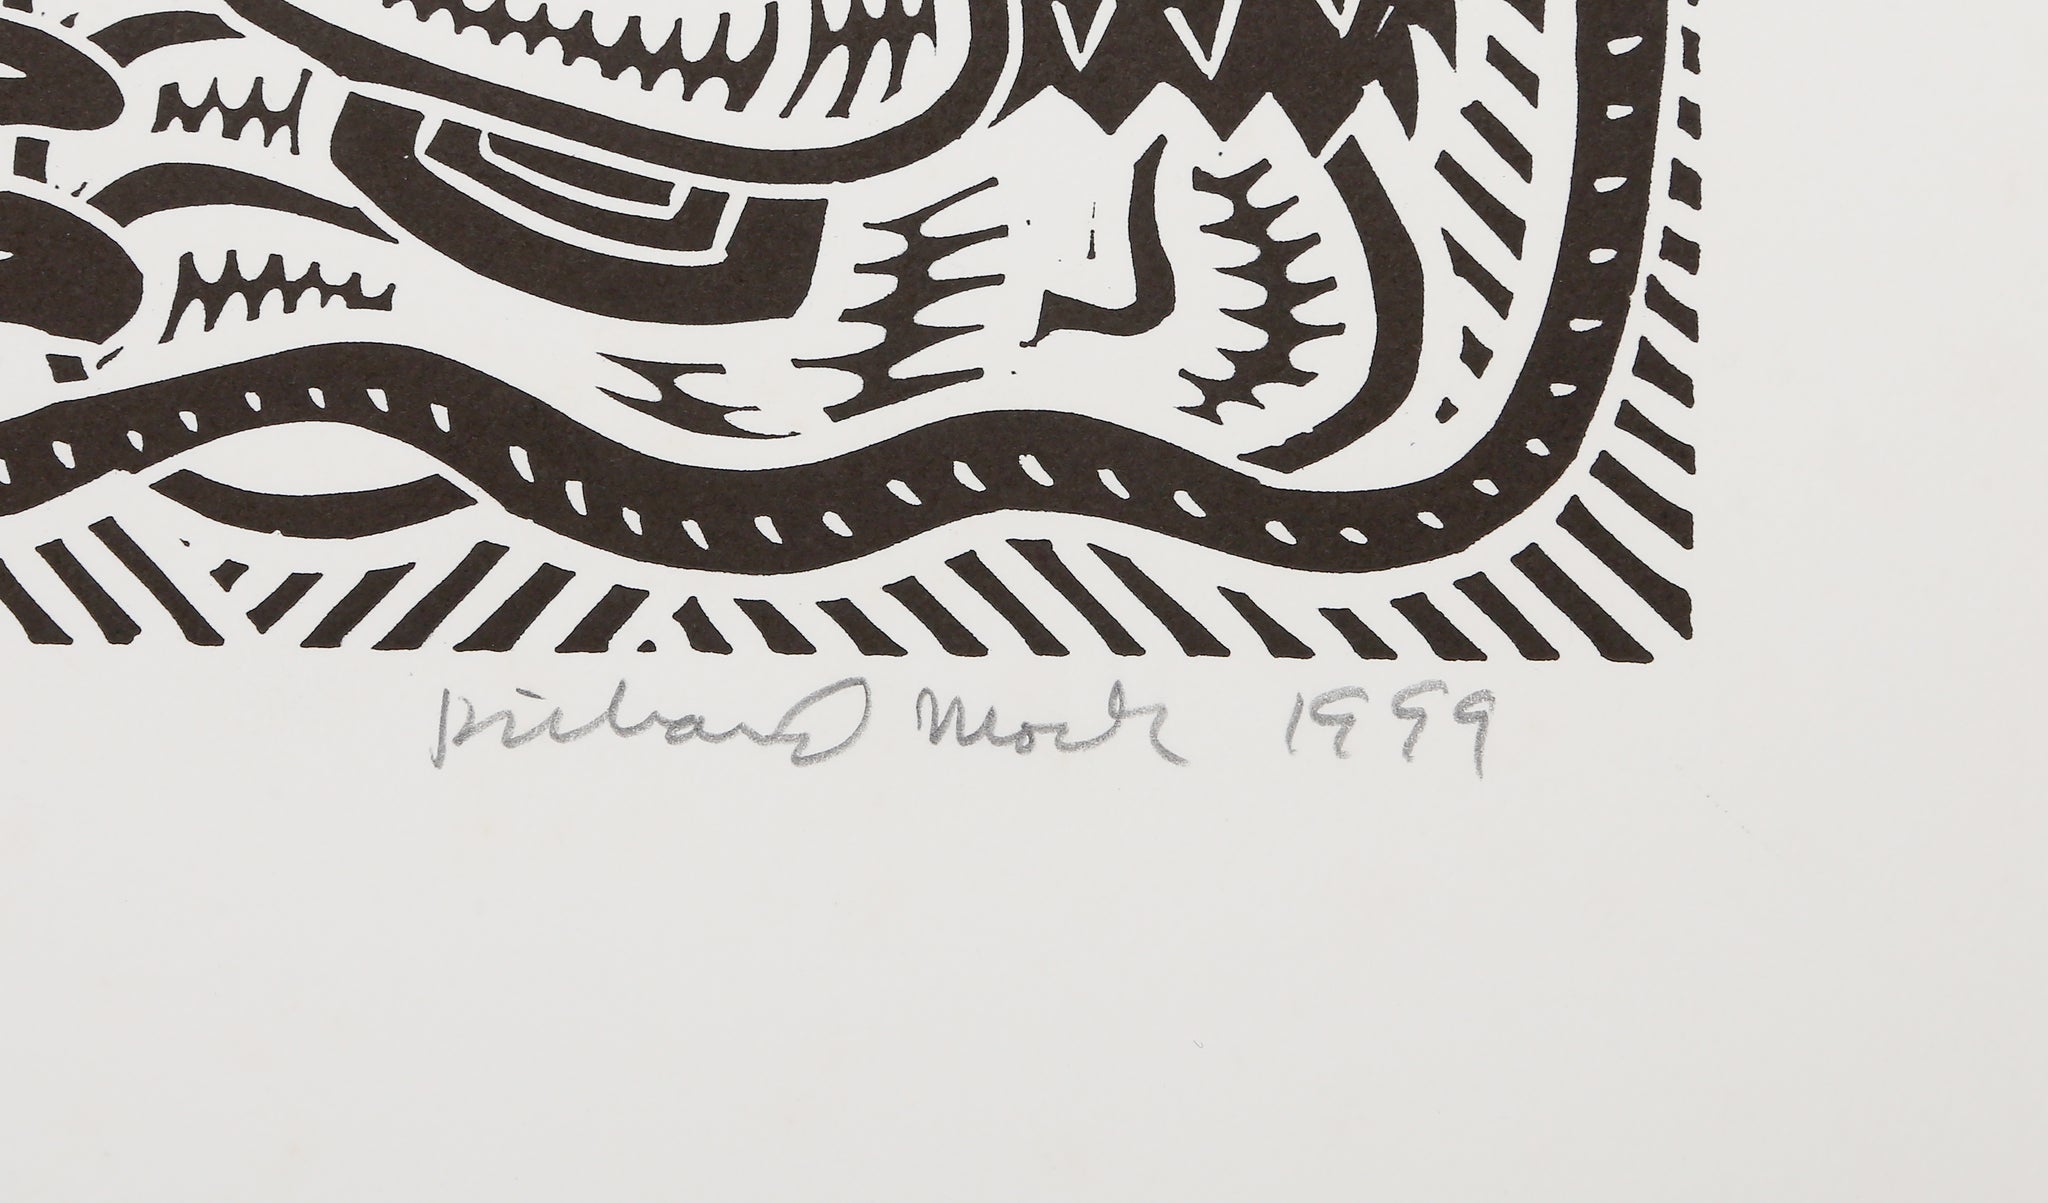 Richard Mock 1999